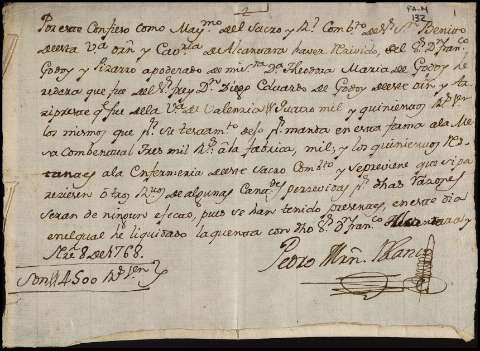 PA-M
132
Por este Confieso como May.mo del Sacro y R.l Comb.to de S.n Benito
de esta V.a orñ y Cav.ria de Alcantara haver Rzivido, del S.r D.n Fran.co
Godoy y Pizarro apoderado de mi S.ra D.a Theodora Maria de Godoy he
redera que fue del S.r frey D.n Diego Eduardo de Godoy de este orñ y Ar
zipreste q.e fue de la V.a de Valencia quatro mil y quinientos R.s de v.on
los mismos que p.r su testam.to dejo se manda en esta forma a la Me
sa Combentual tres mil R.s a la fabrica, mil, y los quinientos
a la Enfermeria de este Sacro Comb.to y se previene que si pa
rezieren otros Rzivos de algunas Cant.des perzevidas p.r dhas razones
seran de ningun efecto, pues se han tenido presentes, en este dia
en el qual he liquidado la quenta con dho S.r D.n Fran.co Alcantara y
8 de 1768.
Son 4500 R.s v.on
Pedro Mrñ. Blanco